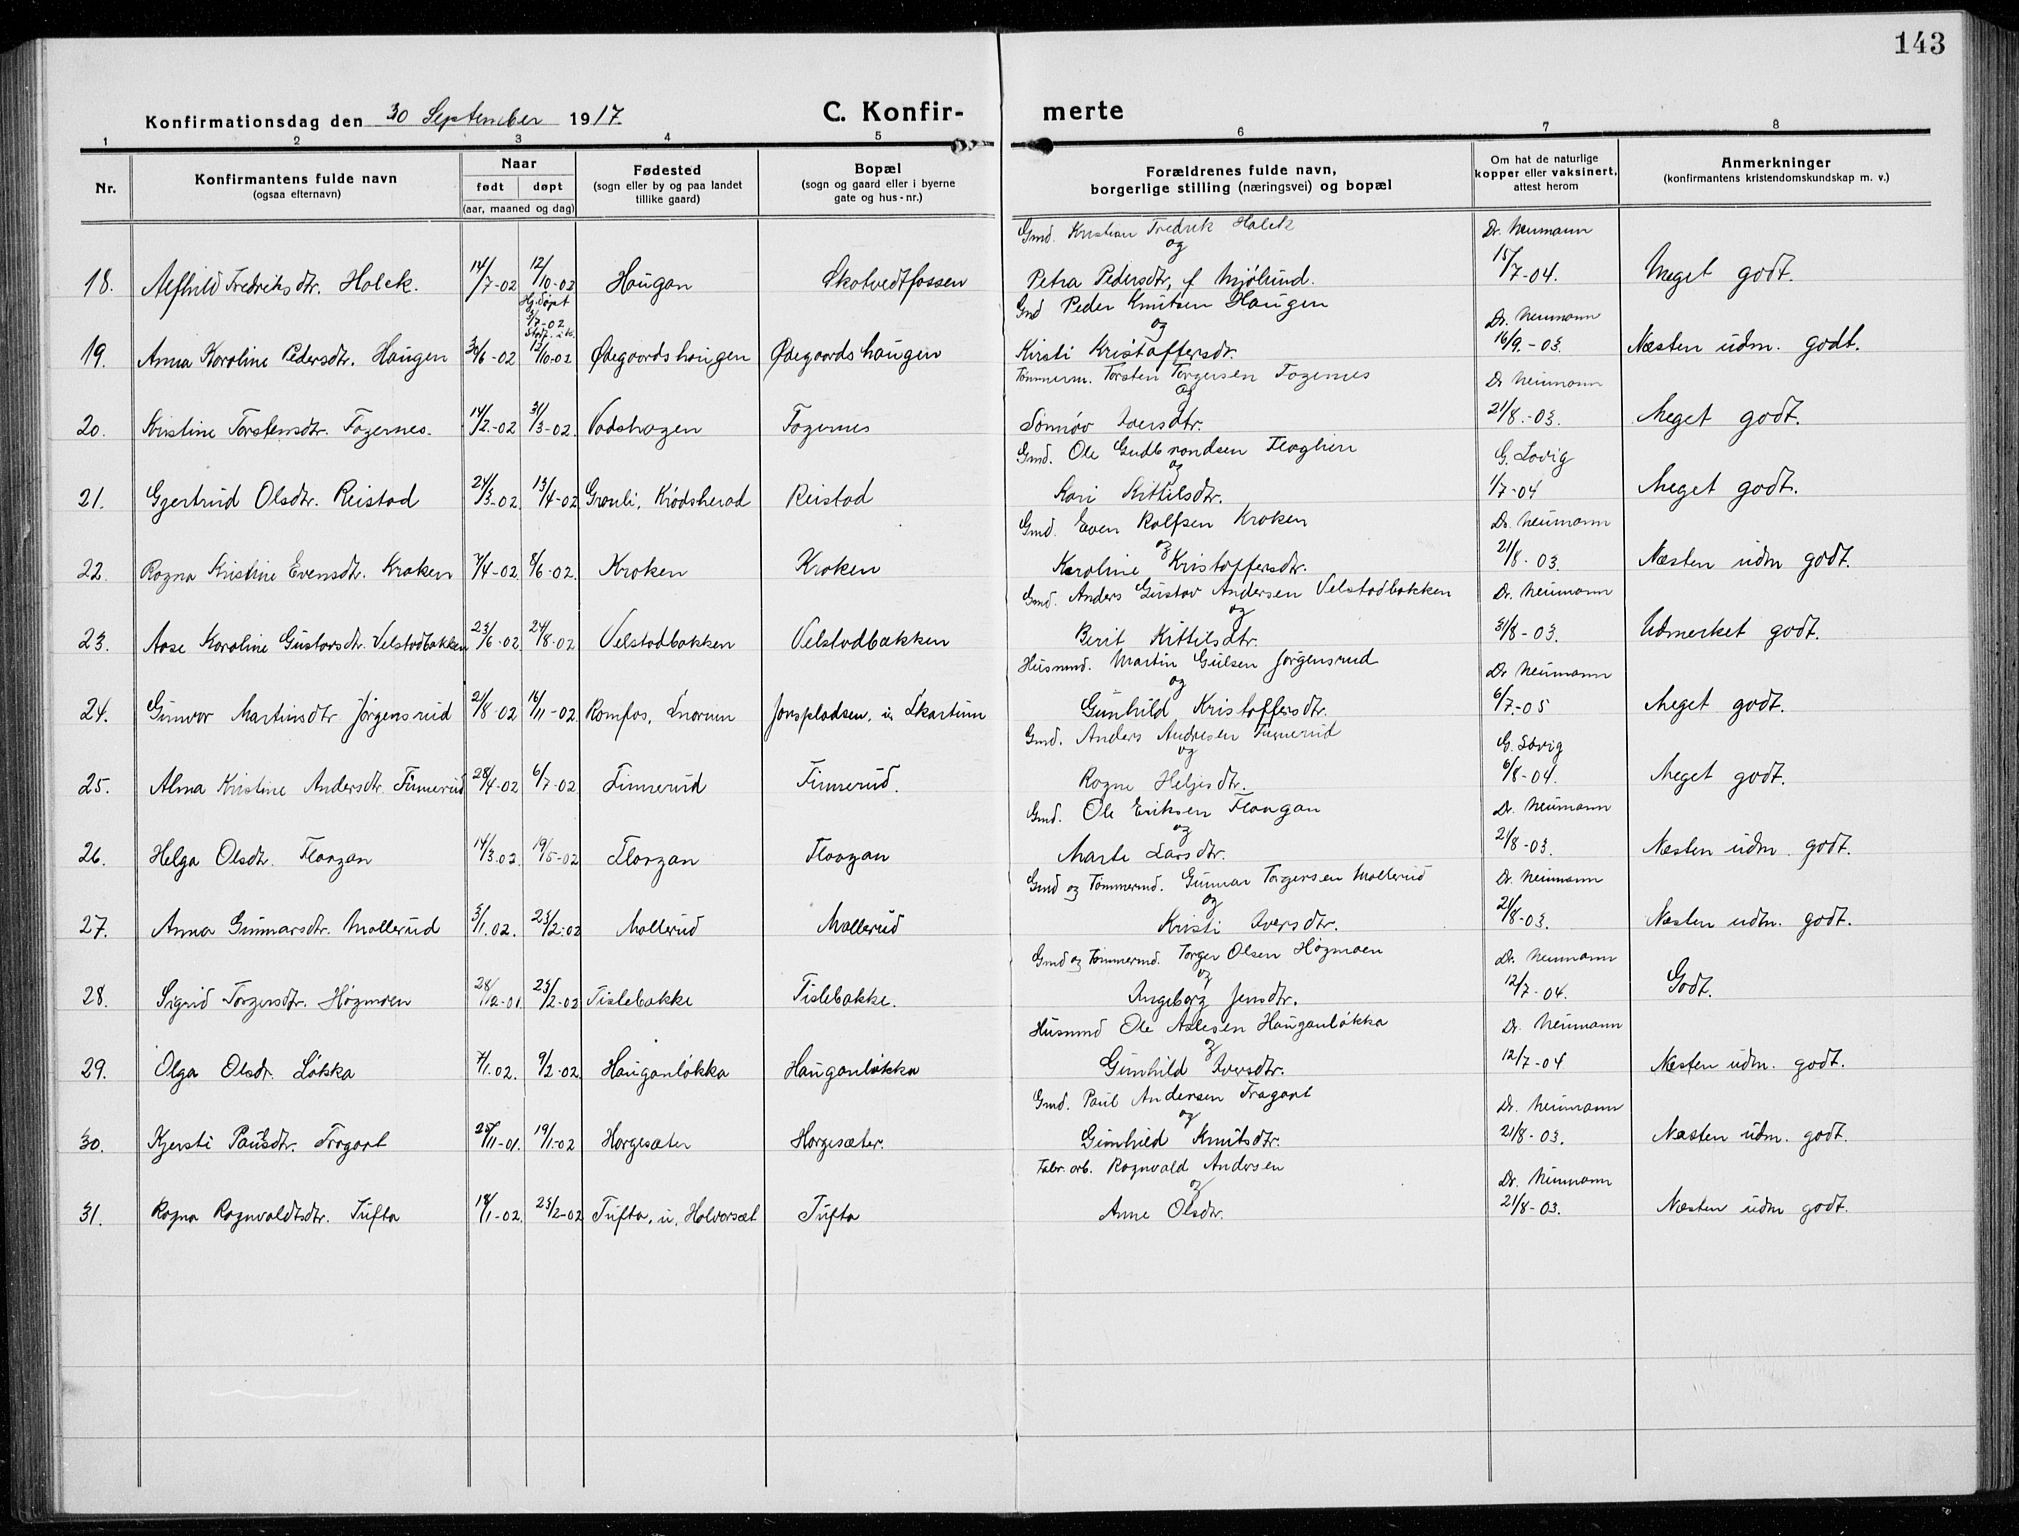 143
Konfirmationsdag den 30 September 1917
C. Konfir-
merte
1 2 3 4 5 6 7 8
Nr.
Konfirmantens fulde navn
(ogsaa efternavn)
Naar
født døpt
(aar, maaned og dag)
Fødested
(sogn eller by og paa landet
tillike gaard)
Bopæl
(sogn og gaard eller i byerne
gate og hus-nr.)
Forældrenes fulde navn,
borgerlige stilling (næringsvei) og bopæl
Om hat de naturlige
kopper eller vaksinert,
attest herom
Anmerkninger
(konfirmantens kristendomskundskap m. v.)
Gmd. Kristian Fredrik Holek Dr. Neumann
og
18. Alfhild Fredriksdtr. Holek. 14/7-02 12/10-02 Haugan Skotvedtfossen Petra Pedersdtr, f Mjølund. 15/7-04. Meget godt.
Hj.døpt
3/7-02
Gmd Peder Knutsen Haugen Dr. Neumann
og
19. Anna Karoline Pedersdtr. Haugen 30/6-02 12/10-02 Ødegaardshaugen Ødegaardshaugen Kirsti Kristoffersdtr. 16/9.-03. Næsten udm. godt.
Tømmerm. Torsten Torgersen Fagernes Dr Neumann
og
20. Kristine Torstensdtr. Fagernes. 14/2.-02 31/3-02. Vadshagen Fagernes Sønnøv Iversdtr. 21/8.-03. Meget godt.
Gmd. Ole Gudbrandsen Flaglien G. Lovig
og
21. Gjertrud Olsdtr. Reistad 24/3-02. 13/4-02 Grønli, Krødsherad Reistad Kari Kittilsdtr. 1/7-04 Meget godt.
Gmd. Even Rolfsen Kroken Dr. Neumann
og
22. Ragna Kristine Evensdtr. Kroken 7/4-02 8/6-02. Kroken Kroken Karoline Kristoffersdtr. 21/8-03. Næsten udm godt.
Gmd. Anders Gustav Andersen Velstadbakken Dr. Neumann
og
23. Aase Karoline Gustavsdtr. Velstadbakken 23/6-02 24/8-02 Velstadbakken Velstadbakken Berit Kittilsdtr. 31/8-03. Udmerket godt.
Husmnd. Martin Gulsen Jørgensrud Dr Neumann
og
24. Gunvor Martinsdtr Jørgensrud 21/8-02 16/11-02. Romfos, Snarum Jonspladsen, u. Skartum Gunhild Kristoffersdtr. 6/7.-05 Meget godt.
Gmd. Anders Andresen Finnerud G. Lovig
og
25. Alma Kristine Andersdtr. Finnerud 28/4-02 6/7-02 Finnerud Finnerud. Ragne Helgesdtr. 6/8-04. Meget godt.
Gmd. Ole Eriksen Flaagan Dr. Neumann
og
26. Helga Olsdtr. Flaagan 14/3.02. 19/5-02 Flaagan Flaagan Marte Larsdtr. 21/8-03. Næsten udm. godt.
Gmd og Tømmermd. Gunnar Torgersen Mallerud Dr. Neumann
og
27. Anna Gunnarsdtr. Mallerud 3/1.02. 23/2-02 Mallerud Mallerud Kristi Iversdtr. 21/8-03. Næsten udm. godt.
Gmd og Tømmermd. Torger Olsen Høgmoen Dr. Neumann
og
28. Sigrid Torgersdtr. Høgmoen 28/12-01. 23/2-02 Tislebakke Tislebakke. Ingeborg Jensdtr. 12/7-04. Godt.
Husmnd Ole Aslesen Hauganløkka Dr. Neumann
og
29. Olga Olsdr. Løkka 7/1.02. 9/2-02. Hauganløkka Hauganløkka Gunhild Iversdtr. 12/7-04 Næsten udm. godt.
Gmd. Paul Andersen Fragart Dr. Neumann
og
30. Kjersti Paulsdtr. Fragart 25/11-01. 19/1-02 Horgesæter Horgesæter. Gunhild Knutsdtr. 21/8-03. Næsten udm. godt.
Fabr. arb. Ragnvald Andersen Dr. Neumann
og
31. Ragna Ragnvaldsdtr. Tufta 18/1-02. 23/2-02 Tufta, u. Halvorsæt Tufta Anne Olsdtr. 21/8-03. Næsten udm godt.